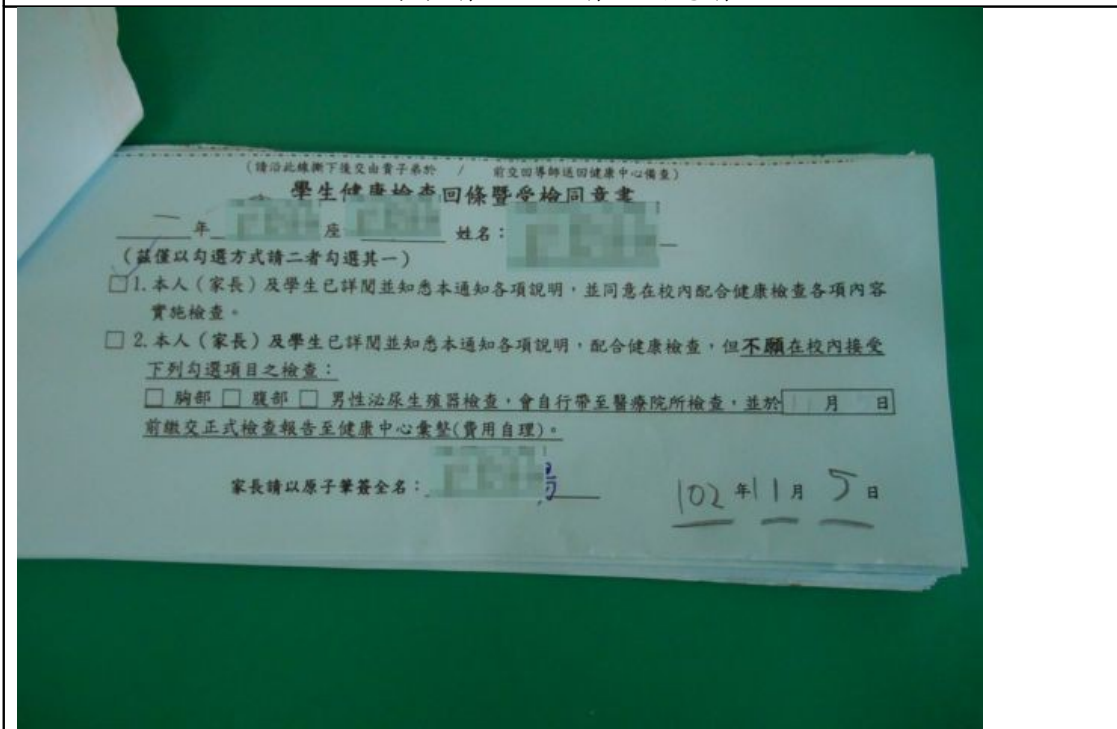 (請沿此線撕下後交由貴子弟於 / 前交回導師送回健康中心備查)
學生健康檢查回條暨受檢同意書
一 年 座 姓名：
(茲僅以勾選方式請二者勾選其一)
□1.本人（家長）及學生已詳閱並知悉本通知各項說明，並同意在校內配合健康檢查各項內容
實施檢查。
□ 2.本人（家長）及學生已詳閱並知悉本通知各項說明，配合健康檢查，但不願在校內接受
下列勾選項目之檢查：
□ 胸部 □ 腹部 □ 男性泌尿生殖器檢查，會自行帶至醫療院所檢查，並於 月 日
前繳交正式檢查報告至健康中心彙整(費用自理)。
家長請以原子筆簽全名：
102 年 11 月 5 日